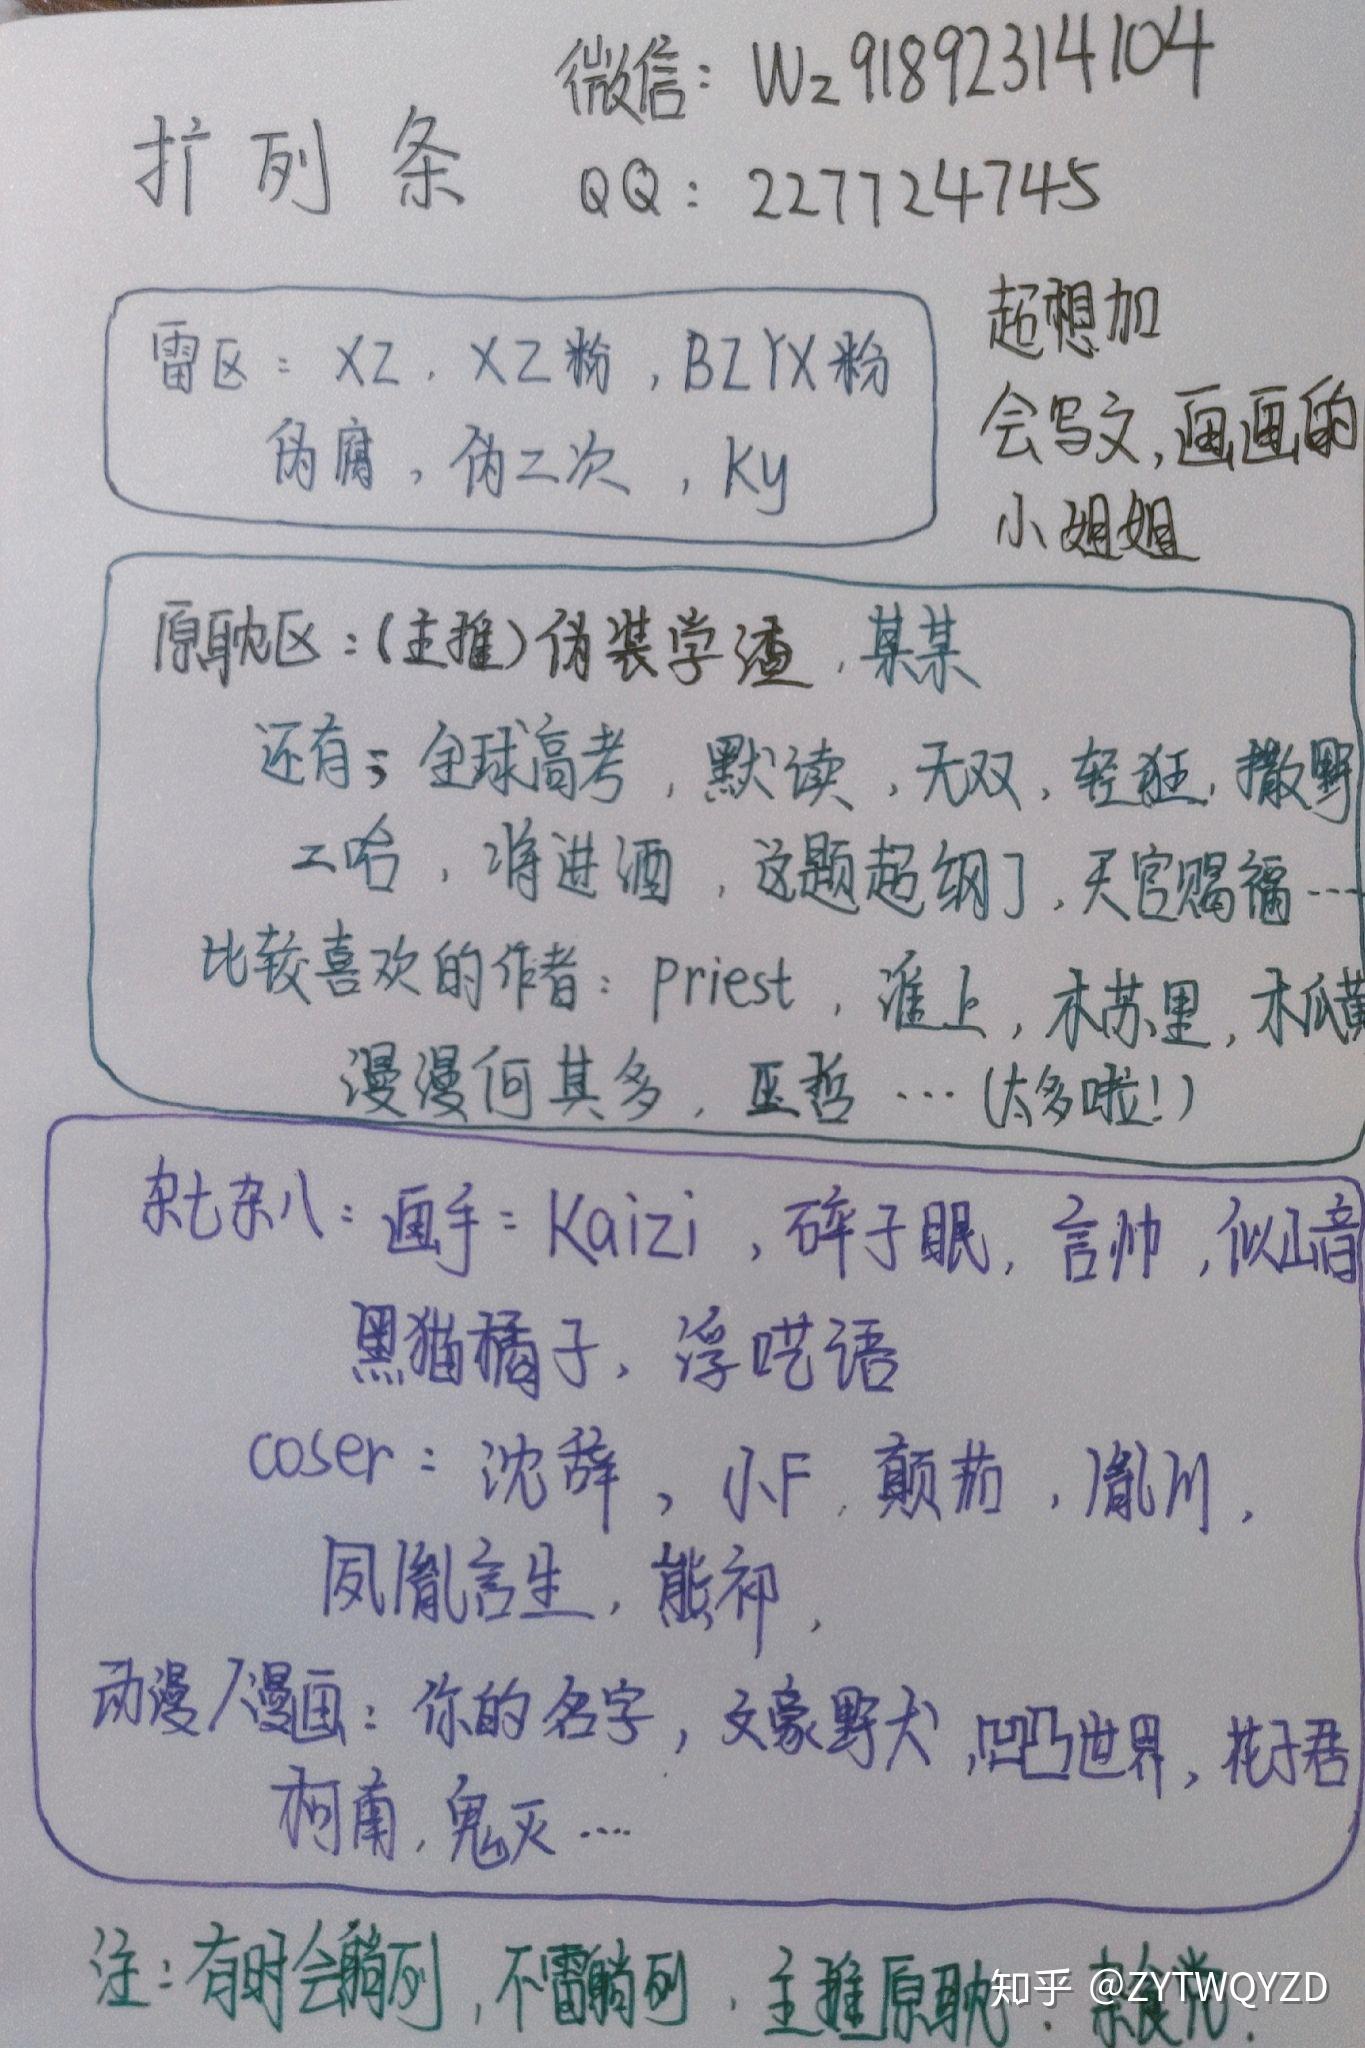 扩列条
微信：Wz91892314104
QQ：2277724745
雷区：XZ，XZ粉，BZYX粉
伪腐，伪二次，Ky
超想加
会写文，画画的
小姐姐
原耽区：(主推)伪装学渣，某某
还有；全球高考，默读，无双，轻狂，撒野
二哈，将进酒，这题超纲了，天官赐福…
比较喜欢的作者：priest，淮上，木苏里，木瓜黄
漫漫何其多，巫哲…(太多啦！)
杂七杂八：画手：Kaizi，碎子眠，言帅，似山音
黑猫橘子，浮呓语
coser：沈辞，小F，颠茄，胤川，
凤胤言生，熊祁，
动漫/漫画：你的名字，文豪野犬，凹凸世界，花子君
柯南，鬼灭…
注：有时会躺列，不雷躺列，主推原耽．杂食党．
知乎 @ZYTWQYZD